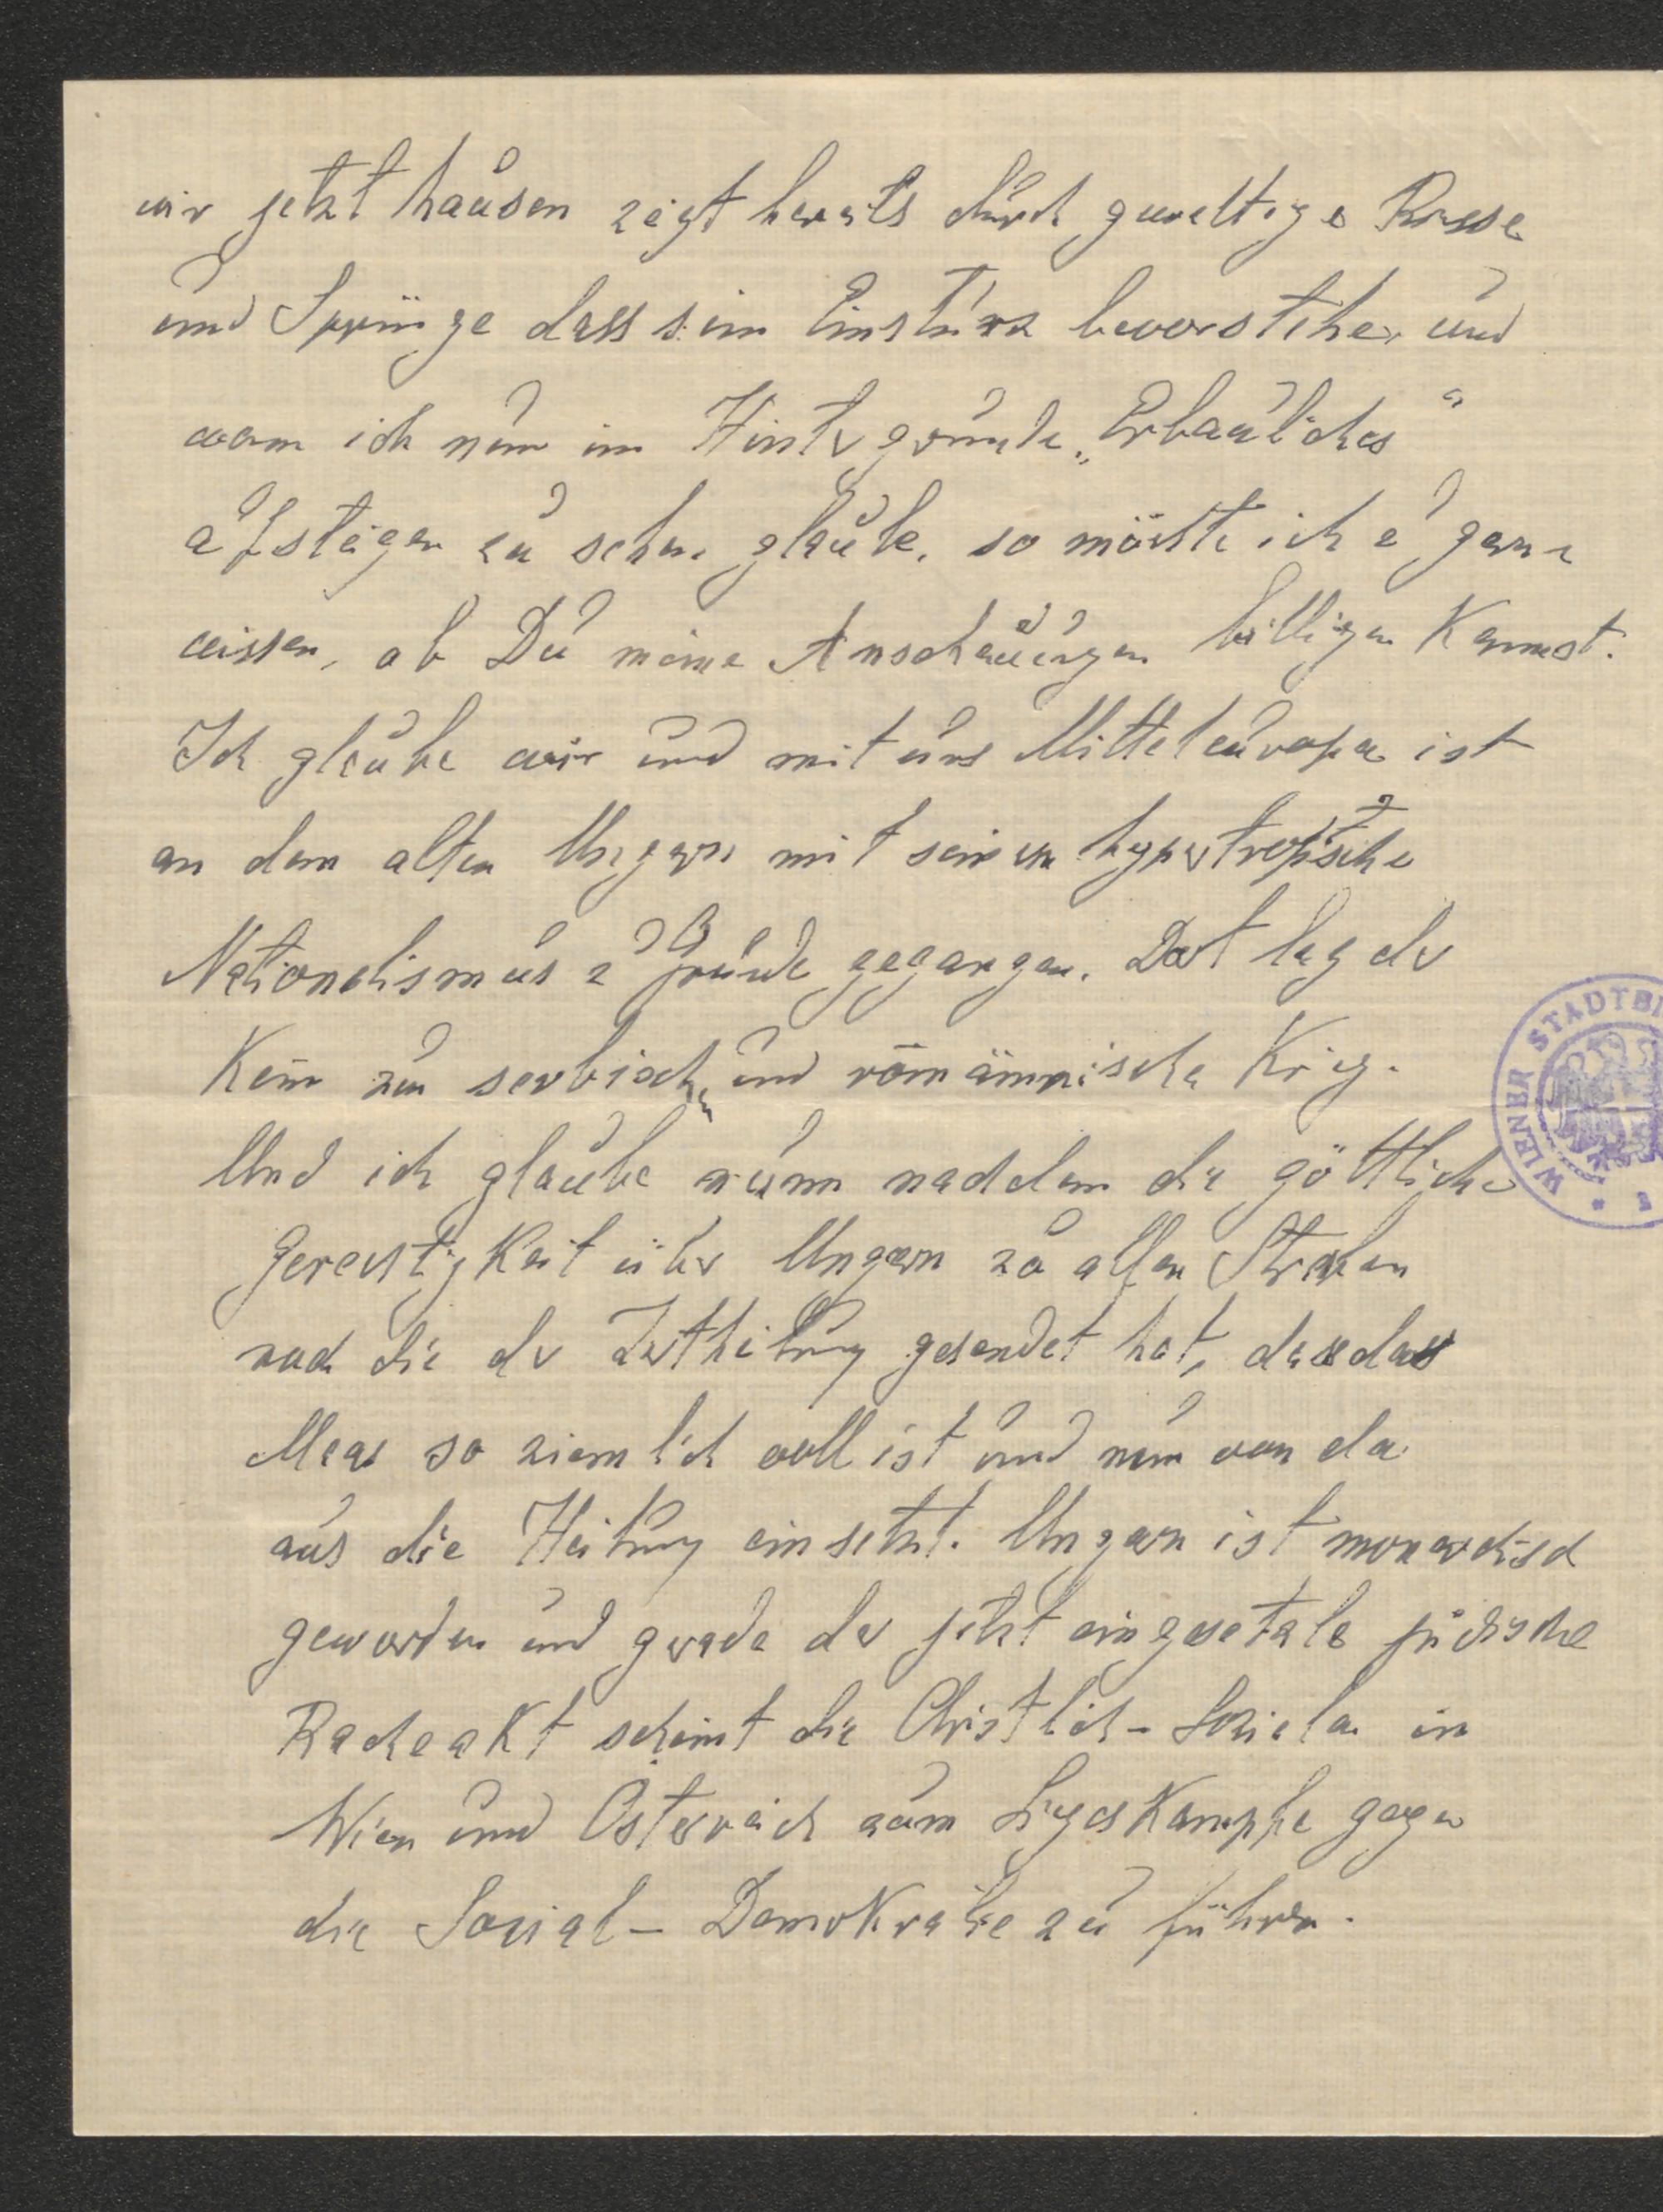 wir jetzt hausen zeigt bereits durch gewaltige Risse
und Sprünge dass sein Einsturz bevorstehe und
wenn ich nun im Hintergrunde „Erbauliches“
aufsteigen zu sehen glaube, so möchte ich gern
wissen, ob Du meine Anschauungen billigen kannst.
Ich glaube wir und mit uns Mitteleuropa ist
an dem alten Ungarn mit seinem hypertrophische
Nationalismus zu Grunde gegangen. Dort lag der
Keim zum serbischen und rumännische Krieg.
Und ich glaube nunn nachdem die göttliche
Gerechtigkeit über Ungarn zu allen Strafen
noch die der Zertheilung gesendet hat, dass das
Mass so ziemlich voll ist und nun von da
aus die Heilung einsetzt. Ungarn ist monarchisch
geworden und gerade der jetzt eingesetzte jüdische
Racheakt scheint die Christlich-Sozialen in
Wien und Österreich zum Siegeskampfe gegen
die Sozial-Demokratie zu führen.
WIENER STADTBI